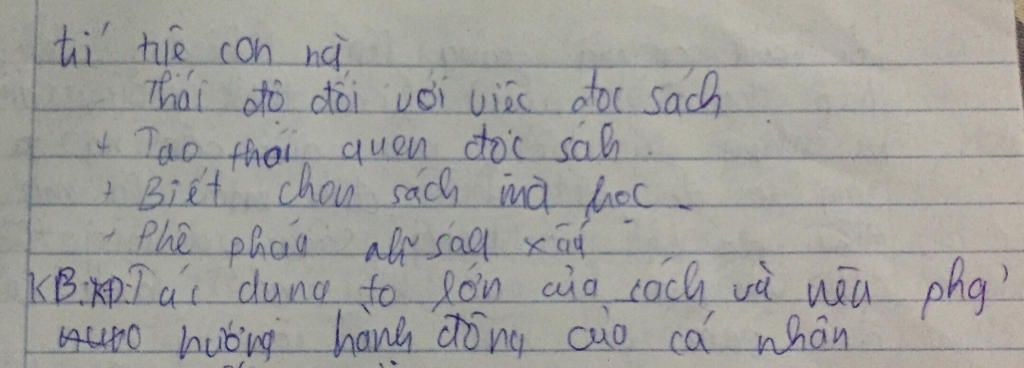 trí tuệ con ng
Thái độ đối với việc đọc sách
+ Tạo thói quen đọc sách.
+ Biết chọn sách mà học.
+ Phê phán sách xấu
KB: KĐ Tác dụng to lớn của sách và nêu phg
hướng hành động của cá nhân